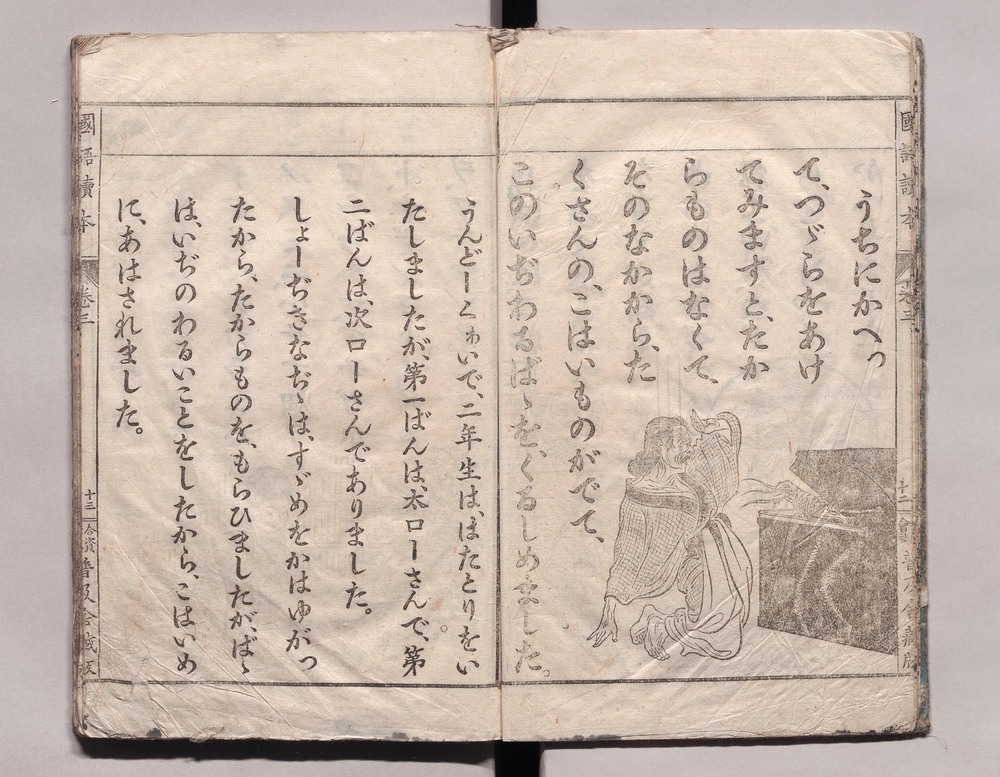 國語讀本 卷三 十二 會普及舍藏版
うちにかへっ
て、つゞらをあけ
てみますと、たか
らものはなくて、
そのなかから、た
くさんの、こはいものがでて、
このいぢわるばゝを、くるしめました。
うんどーくゎいで、二年生は、はたとりをい
たしましたが、第一ばんは、太ローさんで、第
二ばんは、次ローさんでありました。
しょーぢきなぢゞは、すゞめをかはゆがっ
たから、たからものを、もらひましたが、ばゝ
は、いぢのわるいことをしたから、こはいめ
に、あはされました。
國語讀本 卷三 十三 合資普及舍藏版